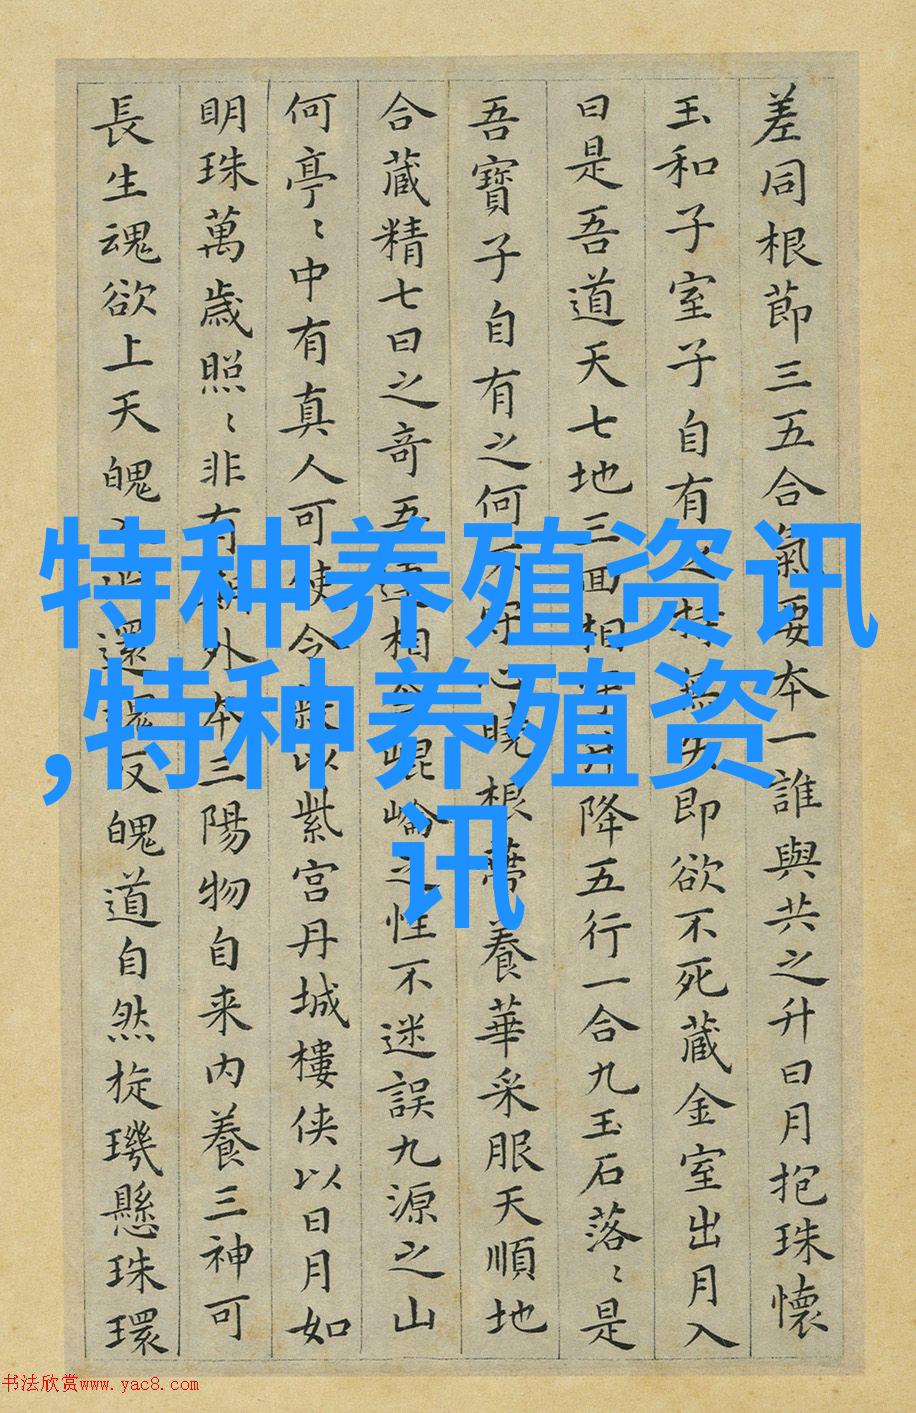 差同根節三五合氣要本一誰與共之升日月抱珠懷
玉和子室子自有之持無失即欲不死藏金室出月入
日是吾道天七地三回相守升降五行一合九玉石落〻是
吾寶子自有之何不守心曉根蒂養華采服天順地
合藏精七日之奇吾連相合崐崘之性不迷誤九源之山
何亭〻中有真人可使令蔽以紫宮丹城樓俠以日月如
明珠萬歲照〻非有期外本三陽物自来内養三神可
長生魂欲上天魄入淵還魂反魄道自然旋璣懸珠環
特种养殖资讯
,特种养殖资
讯
书法欣赏www.yac8.com